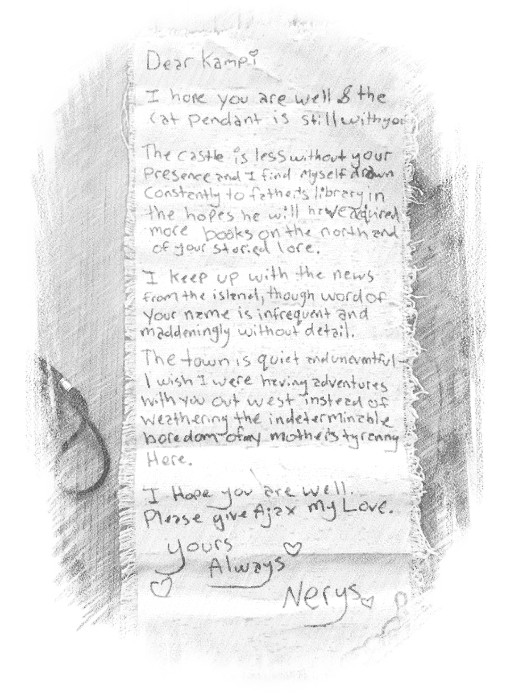 Dear Kampi
I hope you are well & the
cat pendant is still with you
The castle is less without your
presence and I find myself drawn
constantly to father's library in
the hopes he will have acquired
more books on the north and
of your storied lore.
I keep up with the news
from the island, though word of
your name is infrequent and
maddeningly without detail.
The town is quiet and uneventful-
I wish I were having adventures
with you out west instead of
weathering the indeterminable
boredom of my mother's tyranny
Here.
I Hope you are well.
Please give Ajax my Love.
Yours
Always
Nerys